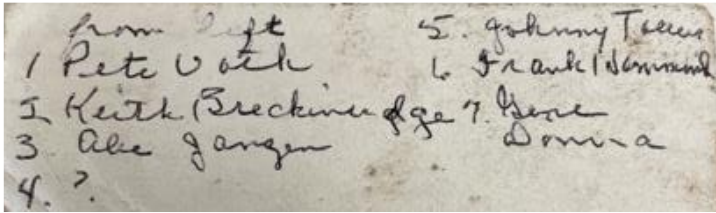 from left
1 Pete Voth
2 Keith Breckinreidge
3 Abe Janzen
4. ?.
5. Johnny Toews
6. Frank
7. Gene
Donna